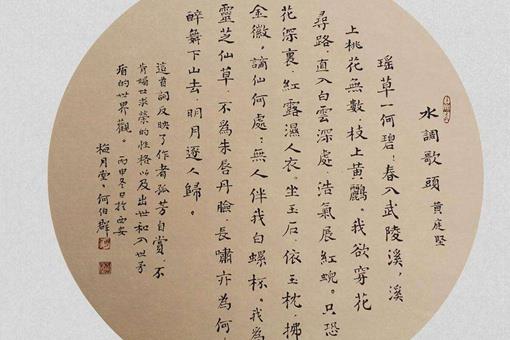 水調歌頭 黃庭堅
瑶草一何碧!春入武陵溪,溪
上桃花無數,枝上黄鸝。我欲穿花
尋路,直入白雲深處,浩氣展紅蜺。只恐
花深裏,紅露濕人衣。坐玉石,依玉枕,拂
金徽,謫仙何處;無人伴我白螺杯。我為
靈芝仙草,不為朱唇丹臉,長嘯亦為何
醉舞下山去,明月逐人歸。
這首詞反映了作者孤芳自賞,不
肯媚世求榮的性格以及出世和入世矛
盾的世界觀。丙申冬日於西安
梅月堂,何伯群